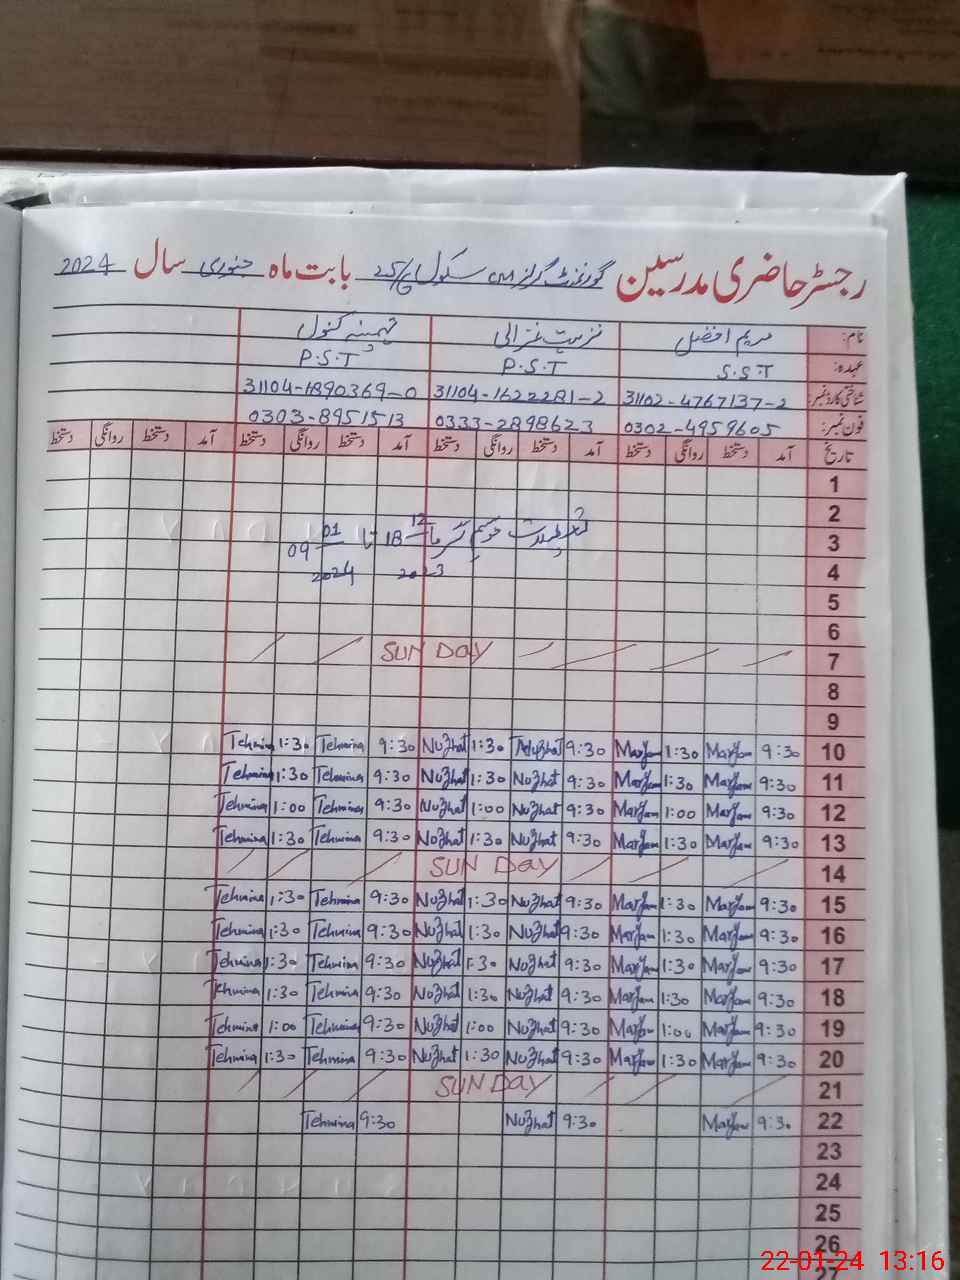 رجسٹر حاضری مدرسین گورنمنٹ گرلز سکول 25/G بابت ماہ جنوری سال 2024
نام: مریم افضل نزہت غزالی تہمینہ کنول
عہدہ: S.S.T P.S.T P.S.T
شناختی کارڈ نمبر: 31102-4767137-2 31104-1622281-2 31104-1890369-0
فون نمبر: 0302-4959605 0333-2898623 0303-8951513
تاریخ آمد دستخط روانگی دستخط آمد دستخط روانگی دستخط آمد دستخط روانگی دستخط آمد دستخط روانگی دستخط
1
2
3 موسم سرما 18 12 2023 تا 09 01 2024
4
5
6
7 SUNDAY
8
9
10 9:30 Maryam 1:30 Maryam 9:30 Nuzhat 1:30 Nuzhat 9:30 Tehmina 1:30 Tehmina
11 9:30 Maryam 1:30 Maryam 9:30 Nuzhat 1:30 Nuzhat 9:30 Tehmina 1:30 Tehmina
12 9:30 Maryam 1:00 Maryam 9:30 Nuzhat 1:00 Nuzhat 9:30 Tehmina 1:00 Tehmina
13 9:30 Maryam 1:30 Maryam 9:30 Nuzhat 1:30 Nuzhat 9:30 Tehmina 1:30 Tehmina
14 SUNDAY
15 9:30 Maryam 1:30 Maryam 9:30 Nuzhat 1:30 Nuzhat 9:30 Tehmina 1:30 Tehmina
16 9:30 Maryam 1:30 Maryam 9:30 Nuzhat 1:30 Nuzhat 9:30 Tehmina 1:30 Tehmina
17 9:30 Maryam 1:30 Maryam 9:30 Nuzhat 1:30 Nuzhat 9:30 Tehmina 1:30 Tehmina
18 9:30 Maryam 1:30 Maryam 9:30 Nuzhat 1:30 Nuzhat 9:30 Tehmina 1:30 Tehmina
19 9:30 Maryam 1:00 Maryam 9:30 Nuzhat 1:00 Nuzhat 9:30 Tehmina 1:00 Tehmina
20 9:30 Maryam 1:30 Maryam 9:30 Nuzhat 1:30 Nuzhat 9:30 Tehmina 1:30 Tehmina
21 SUNDAY
22 9:30 Maryam 9:30 Nuzhat 9:30 Tehmina
23
24
25
26
27
22-01-24 13:16